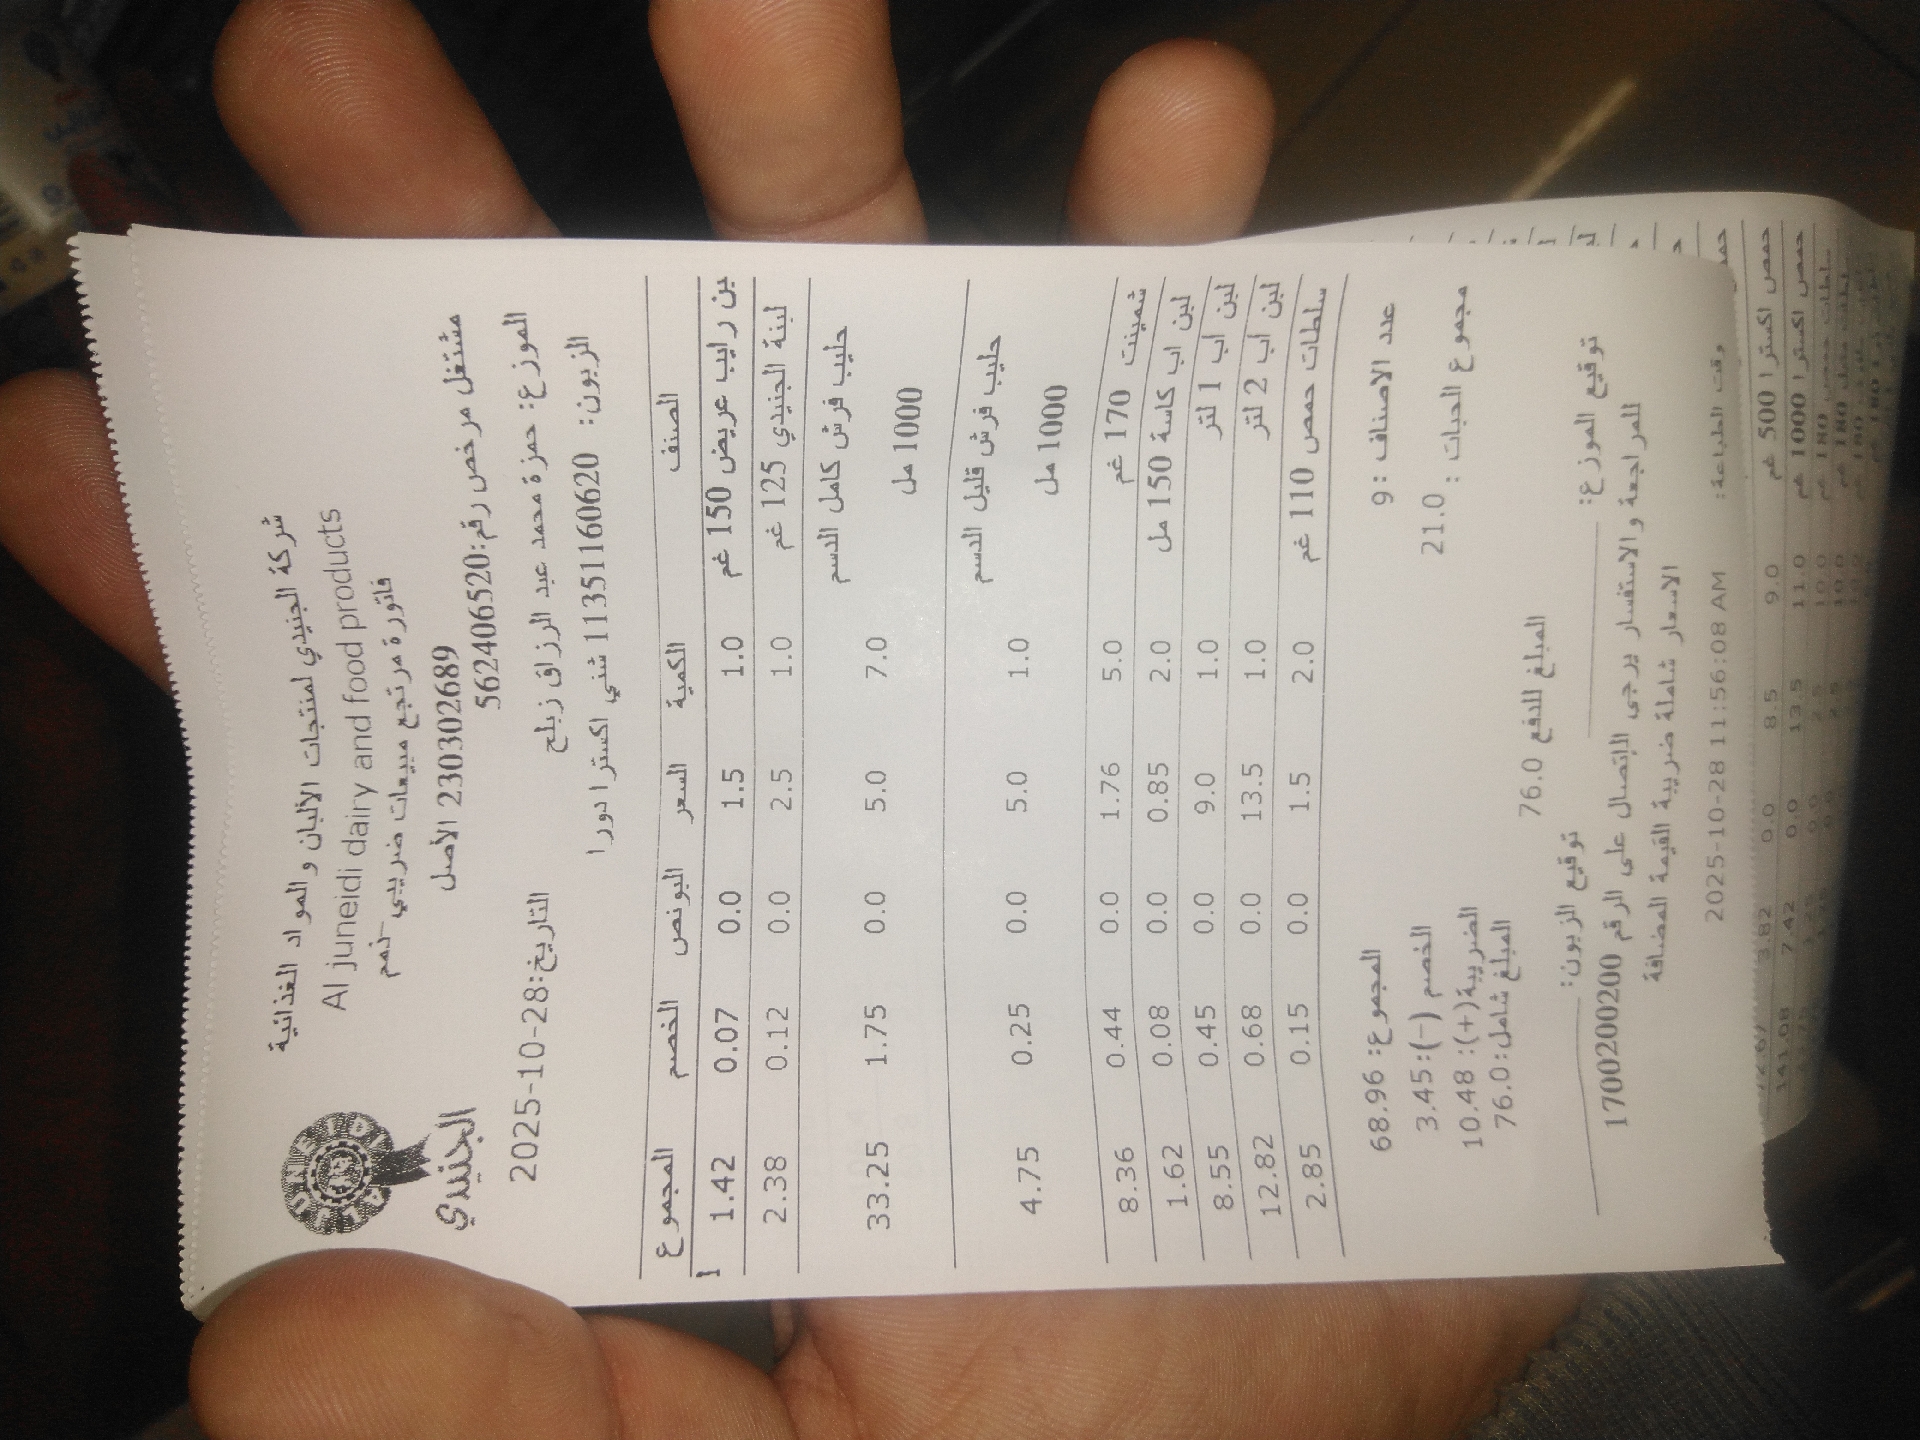 شركة الجنيدي لمنتجات الألبان و المواد الغذائية
Al juneidi dairy and food products
فاتورة مرتجع مبيعات ضريبي -ذمم
AL JUNEIDI
الجنيدي
230302689 الأصل
مشتغل مرخص رقم:562406520
الموزع: حمزة محمد عبد الرزاق زبلح
التاريخ:28-10-2025
الزبون: 11351160620 شني اكسترا دورا
الصنف الكمية السعر البونص الخصم المجموع
بن رايب عريض 150 غم 1.0 1.5 0.0 0.07 1.42
لبنة الجنيدي 125 غم 1.0 2.5 0.0 0.12 2.38
حليب فرش كامل الدسم 1000 مل 7.0 5.0 0.0 1.75 33.25
حليب فرش قليل الدسم 1000 مل 1.0 5.0 0.0 0.25 4.75
شمينت 170 غم 5.0 1.76 0.0 0.44 8.36
لبن اب كاسة 150 مل 2.0 0.85 0.0 0.08 1.62
لبن اب 1 لتر 1.0 9.0 0.0 0.45 8.55
لبن اب 2 لتر 1.0 13.5 0.0 0.68 12.82
سلطات حمص 110 غم 2.0 1.5 0.0 0.15 2.85
عدد الاصناف :9
المجموع: 68.96
مجموع الحبات : 21.0
الخصم (-):3.45
الضريبة(+): 10.48
المبلغ شامل:76.0
المبلغ للدفع 76.0
توقيع الموزع: توقيع الزبون:
للمراجعة والاستفسار يرجى الإتصال على الرقم 1700200200
الاسعار شاملة ضريبة القيمة المضافة
وقت الطباعة: 2025-10-28 11:56:08 AM
حمص اكسترا 500 غم 9.0 8.5 0.0 3.82
حمص اكسترا 1000 غم 11.0 13.5 0.0 7.42 141.08